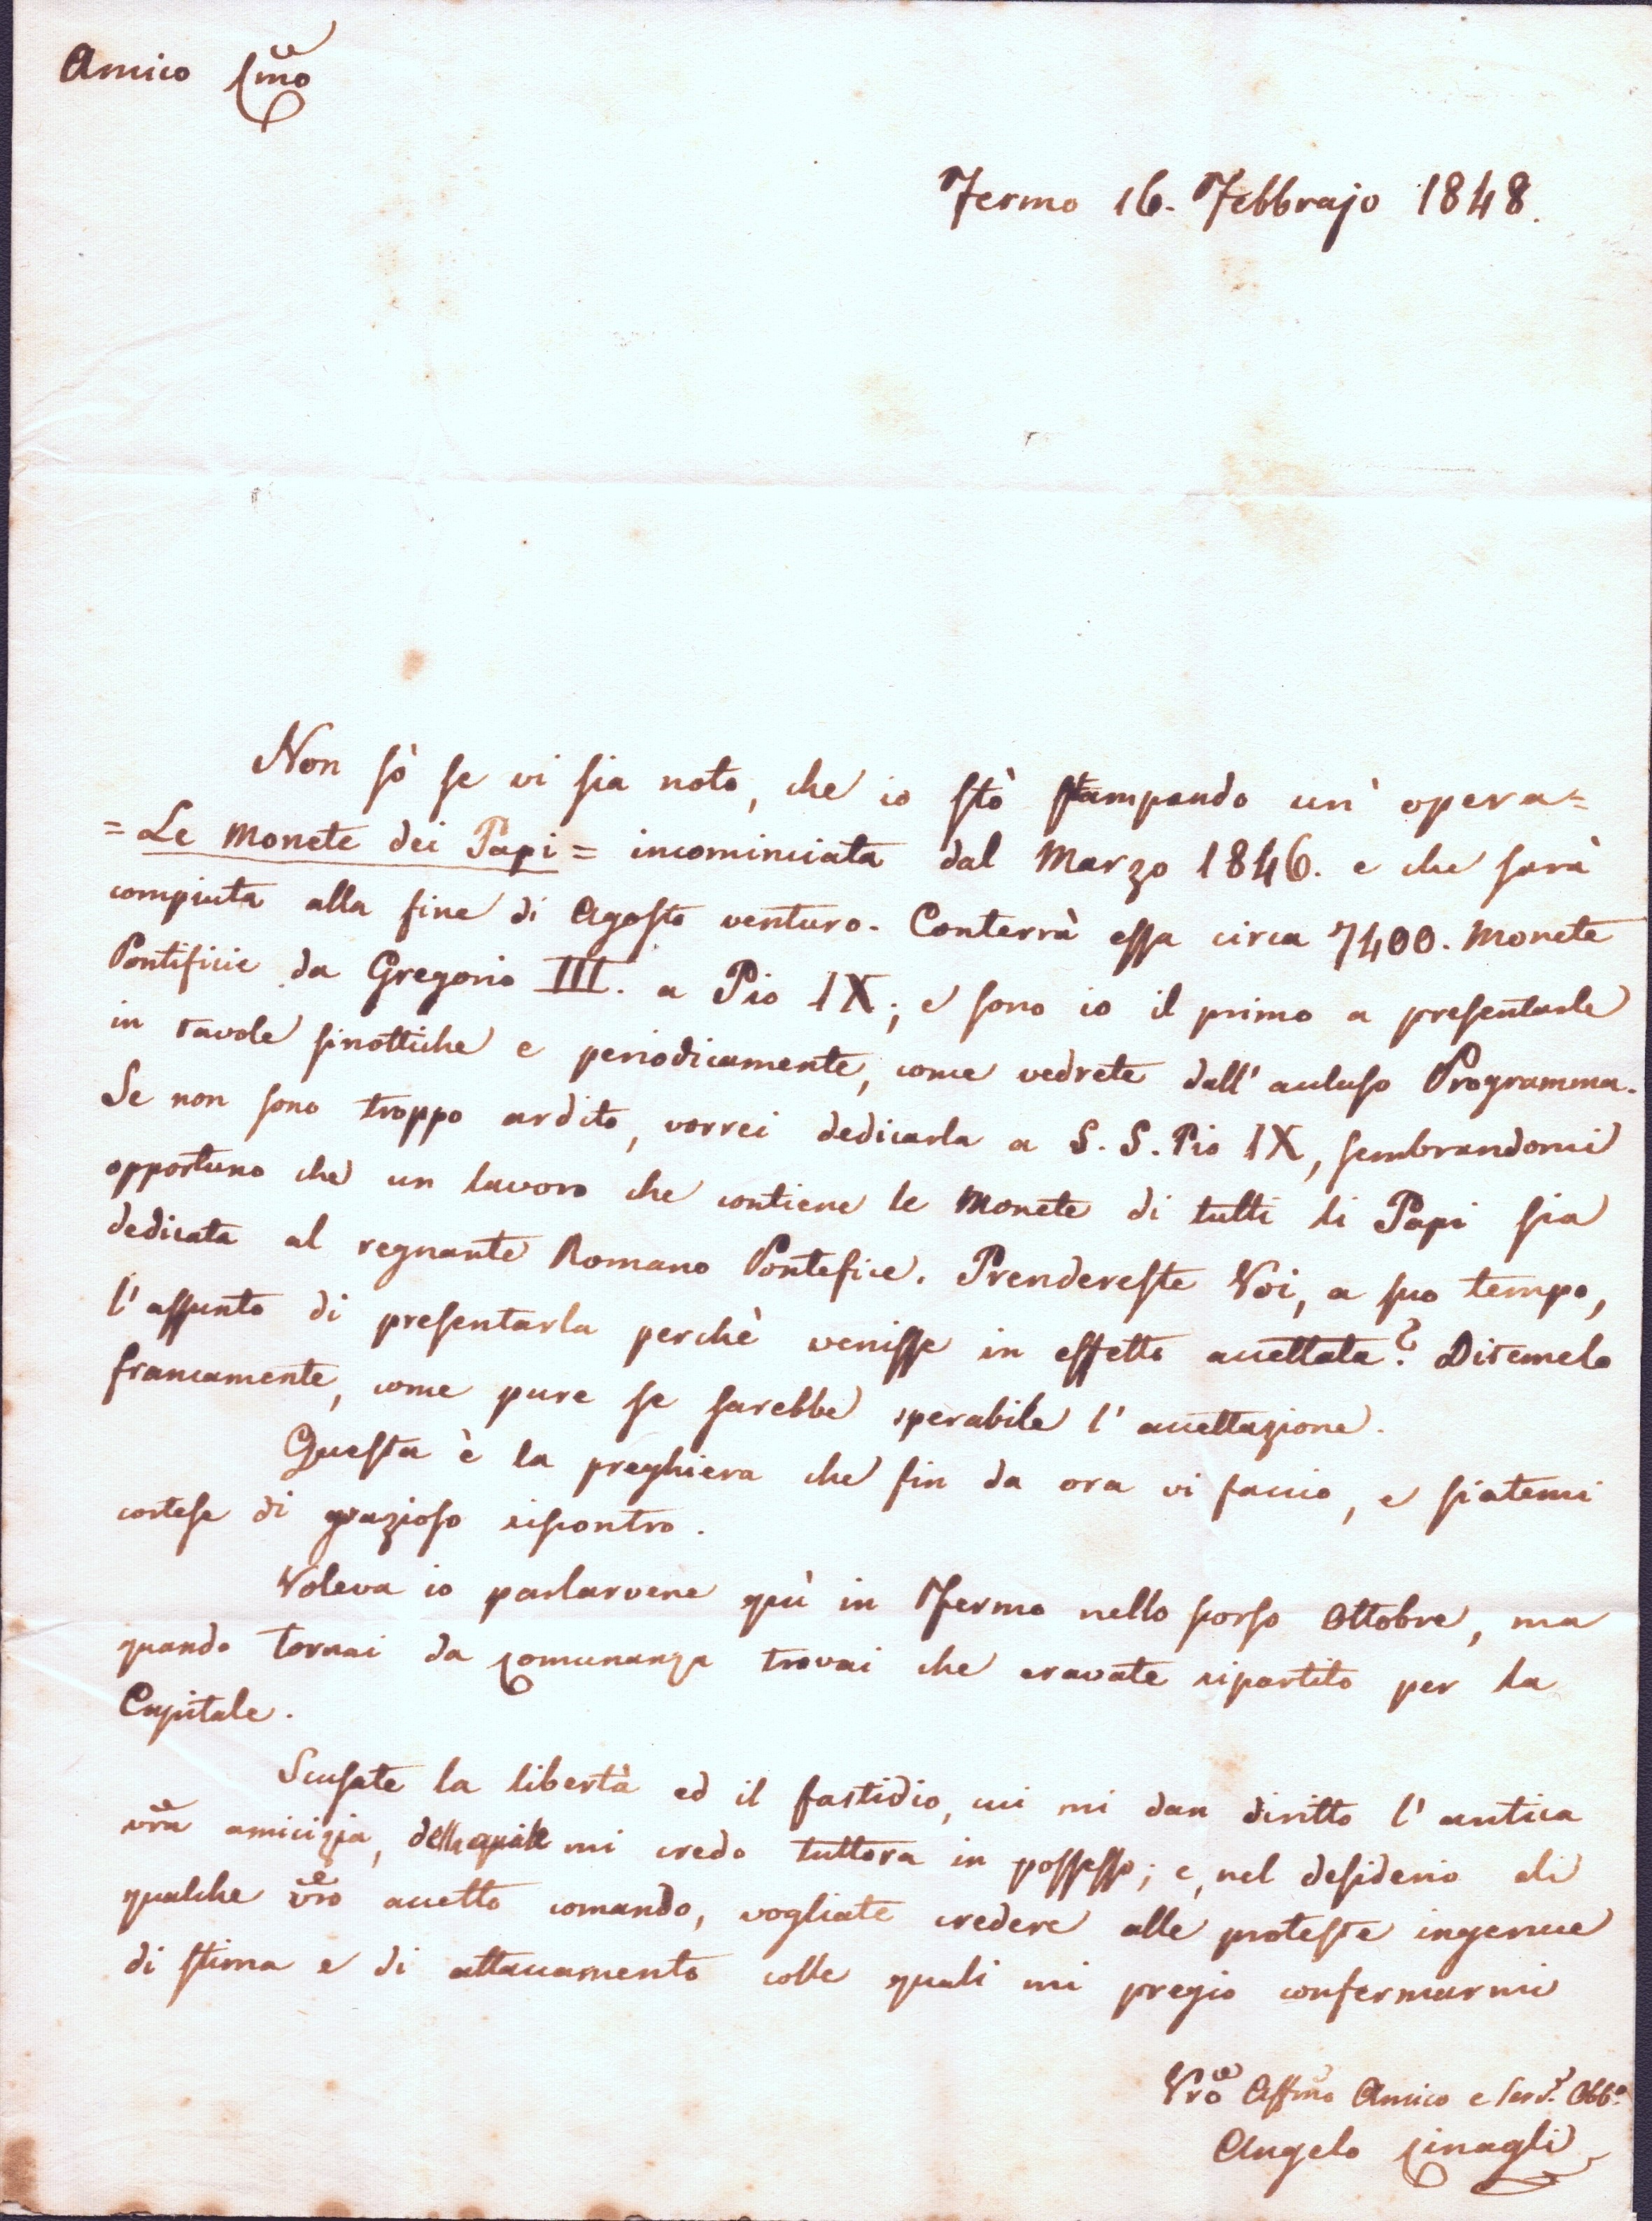 Amico Cmo
Fermo 16. Febbrajo 1848.
Non sò se vi sia noto, che io stò stampando un' opera =
= Le Monete dei Papi = incominciata dal Marzo 1846. e che sarà
compiuta alla fine di Agosto venturo. Conterrà essa circa 7400. Monete
Pontificie da Gregorio III. a Pio IX; e sono io il primo a presentarle
in tavole sinottiche e periodicamente, come vedrete dall' accluso Programma.
Se non sono troppo ardito, vorrei dedicarla a S. S. Pio IX, sembrandomi
opportuno che un lavoro che contiene le Monete di tutti li Papi sia
dedicata al regnante Romano Pontefice. Prendereste Voi, a suo tempo,
l' assunto di presentarla perchè venisse in effetto accettata? Ditemelo
francamente, come pure se sarebbe sperabile l' accettazione.
Questa è la preghiera che fin da ora vi faccio, e siatemi
cortese di grazioso riscontro.
Voleva io parlarvene quì in Fermo nello scorso Ottobre, ma
quando tornai da Comunanza trovai che eravate ripartito per la
Capitale.
Scusate la libertà ed il fastidio, cui mi dan diritto l' antica
vra amicizia, della quale mi credo tuttora in possesso; e, nel desiderio di
qualche vro accetto comando, vogliate credere alle proteste ingenue
di stima e di attaccamento colle quali mi pregio confermarmi
Vro Affmo Amico e Serv.r Obb.o
Angelo Cinagli